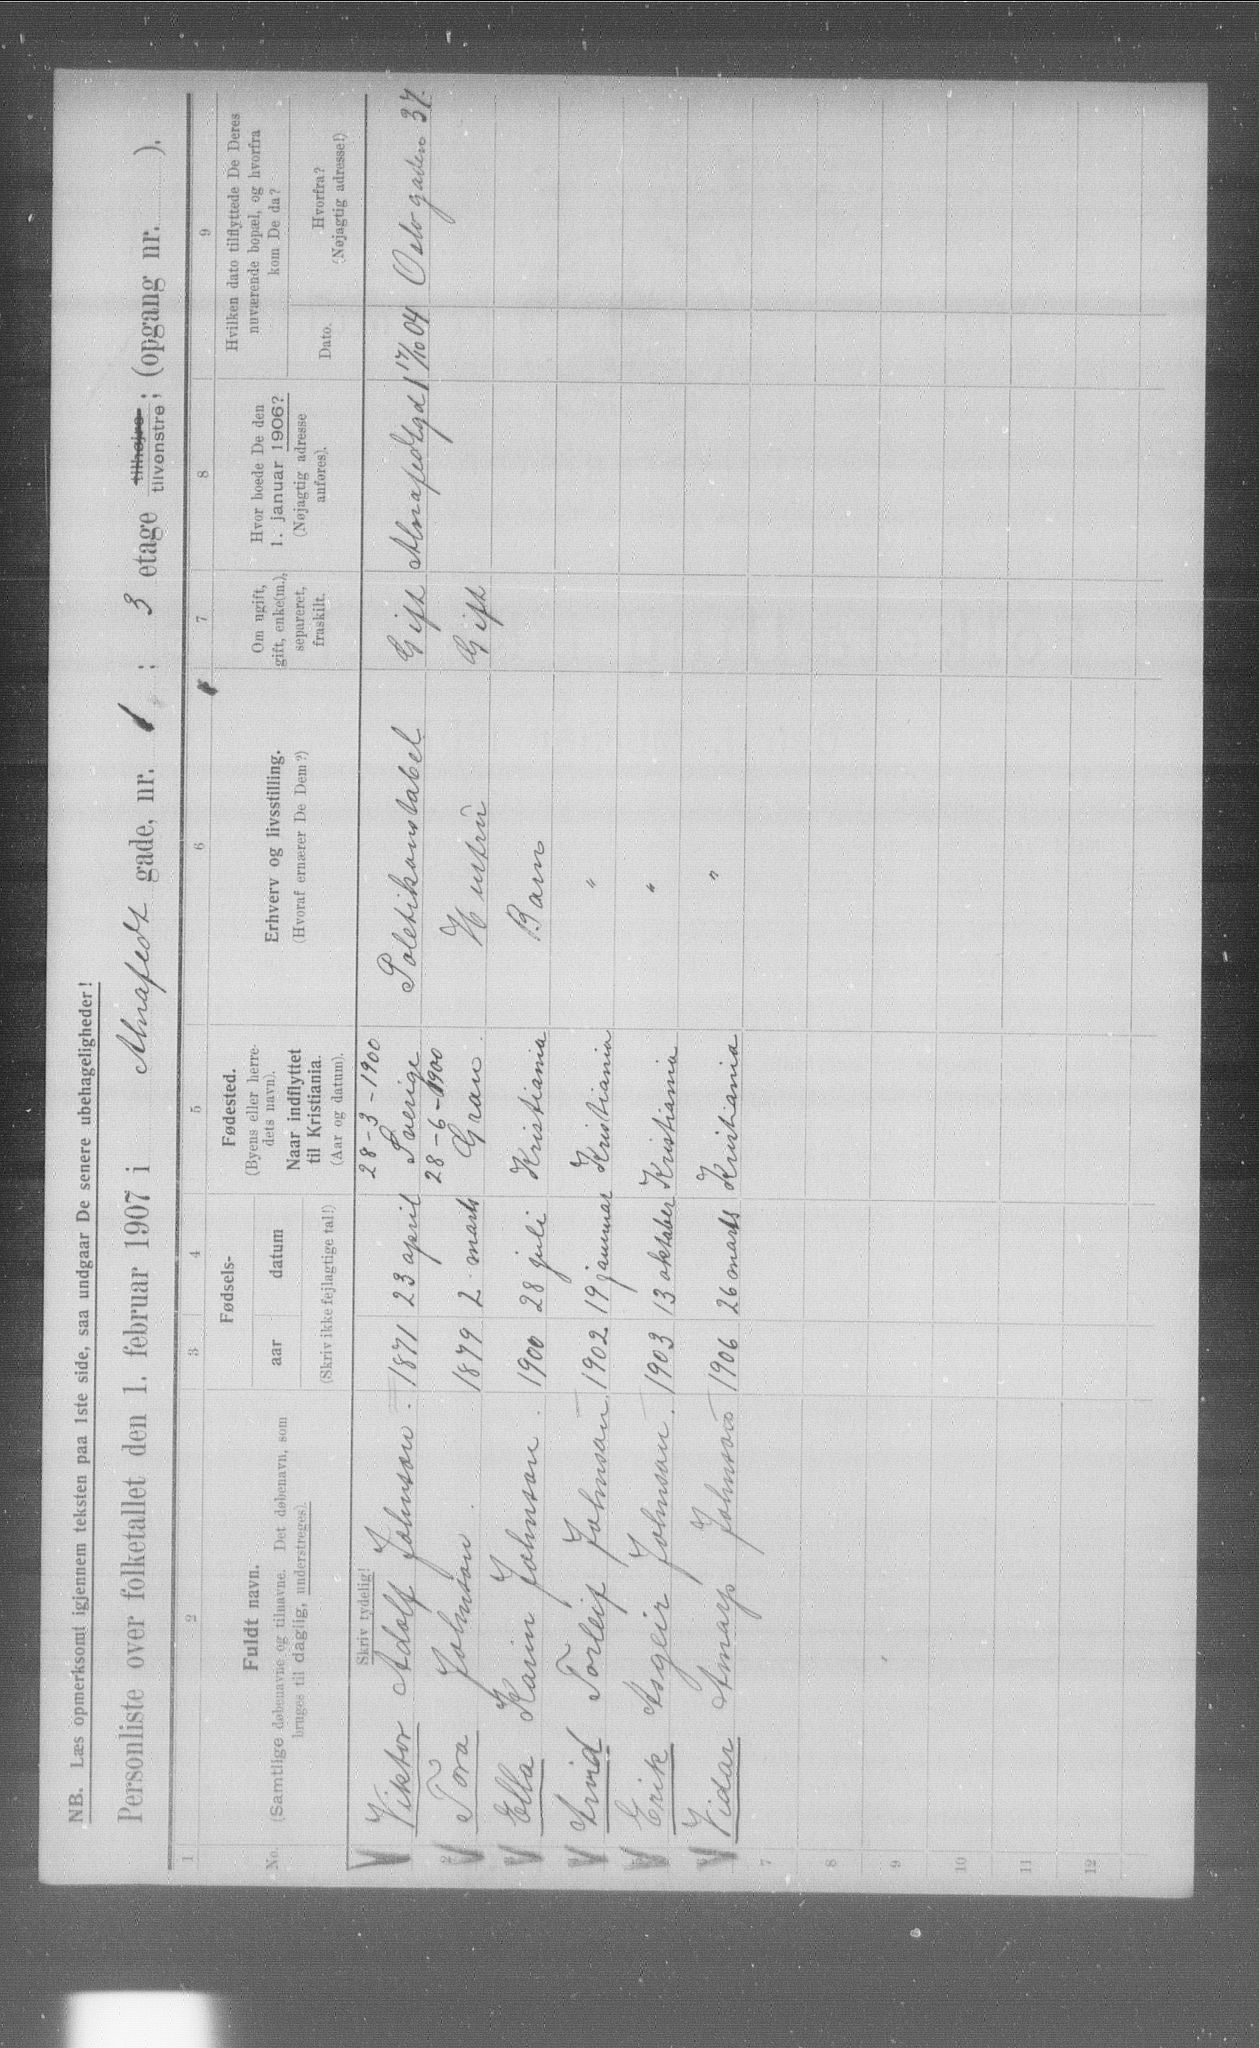 NB. Læs opmerksomt igjennem teksten paa 1ste side, saa undgaar De senere ubehageligheder!
Personliste over folketallet den 1. februar 1907 i Alnafedt gade, nr. 1 ; 3 etage tilhøjre tilvenstre ; (opgang nr. ).
1 2 3 4 5 6 7 8 9
No. Fuldt navn. (Samtlige døbenavne og tilnavne. Det døbenavn, som bruges til daglig, understreges).
Fødsels- aar datum (Skriv ikke fejlagtige tal!)
Fødested. (Byens eller herredets navn). Naar indflyttet til Kristiania. (Aar og datum).
Erhverv og livsstilling. (Hvoraf ernærer De Dem?)
Om ugift, gift, enke(m.), separeret, fraskilt.
Hvor boede De den 1. januar 1906? (Nøjagtig adresse anføres).
Hvilken dato tilflyttede De Deres nuværende bopæl, og hvorfra kom De da?
Dato. Hvorfra? (Nøjagtig adresse!)
Skriv tydelig!
28-3-1900
Viktor Adolf Johnson. 1871 23 april Sverige Poletikonstabel Gift Alnafedtgd 1 17/10 04 Oslo gaden 37.
28-6-1900
2 Tora Johnson. 1879 2. marts Gran. Hustru Gift
Ella Karin Johnson. 1900 28 juli Kristiania Barn
Arvid Torleif Johnson. 1902 19 januar Kristiania "
Erik Asgeir Johnson. 1903 13 oktober Kristiania "
Vidar Johnson 1906 26 marts Kristiania "
7
8
9
10
11
12